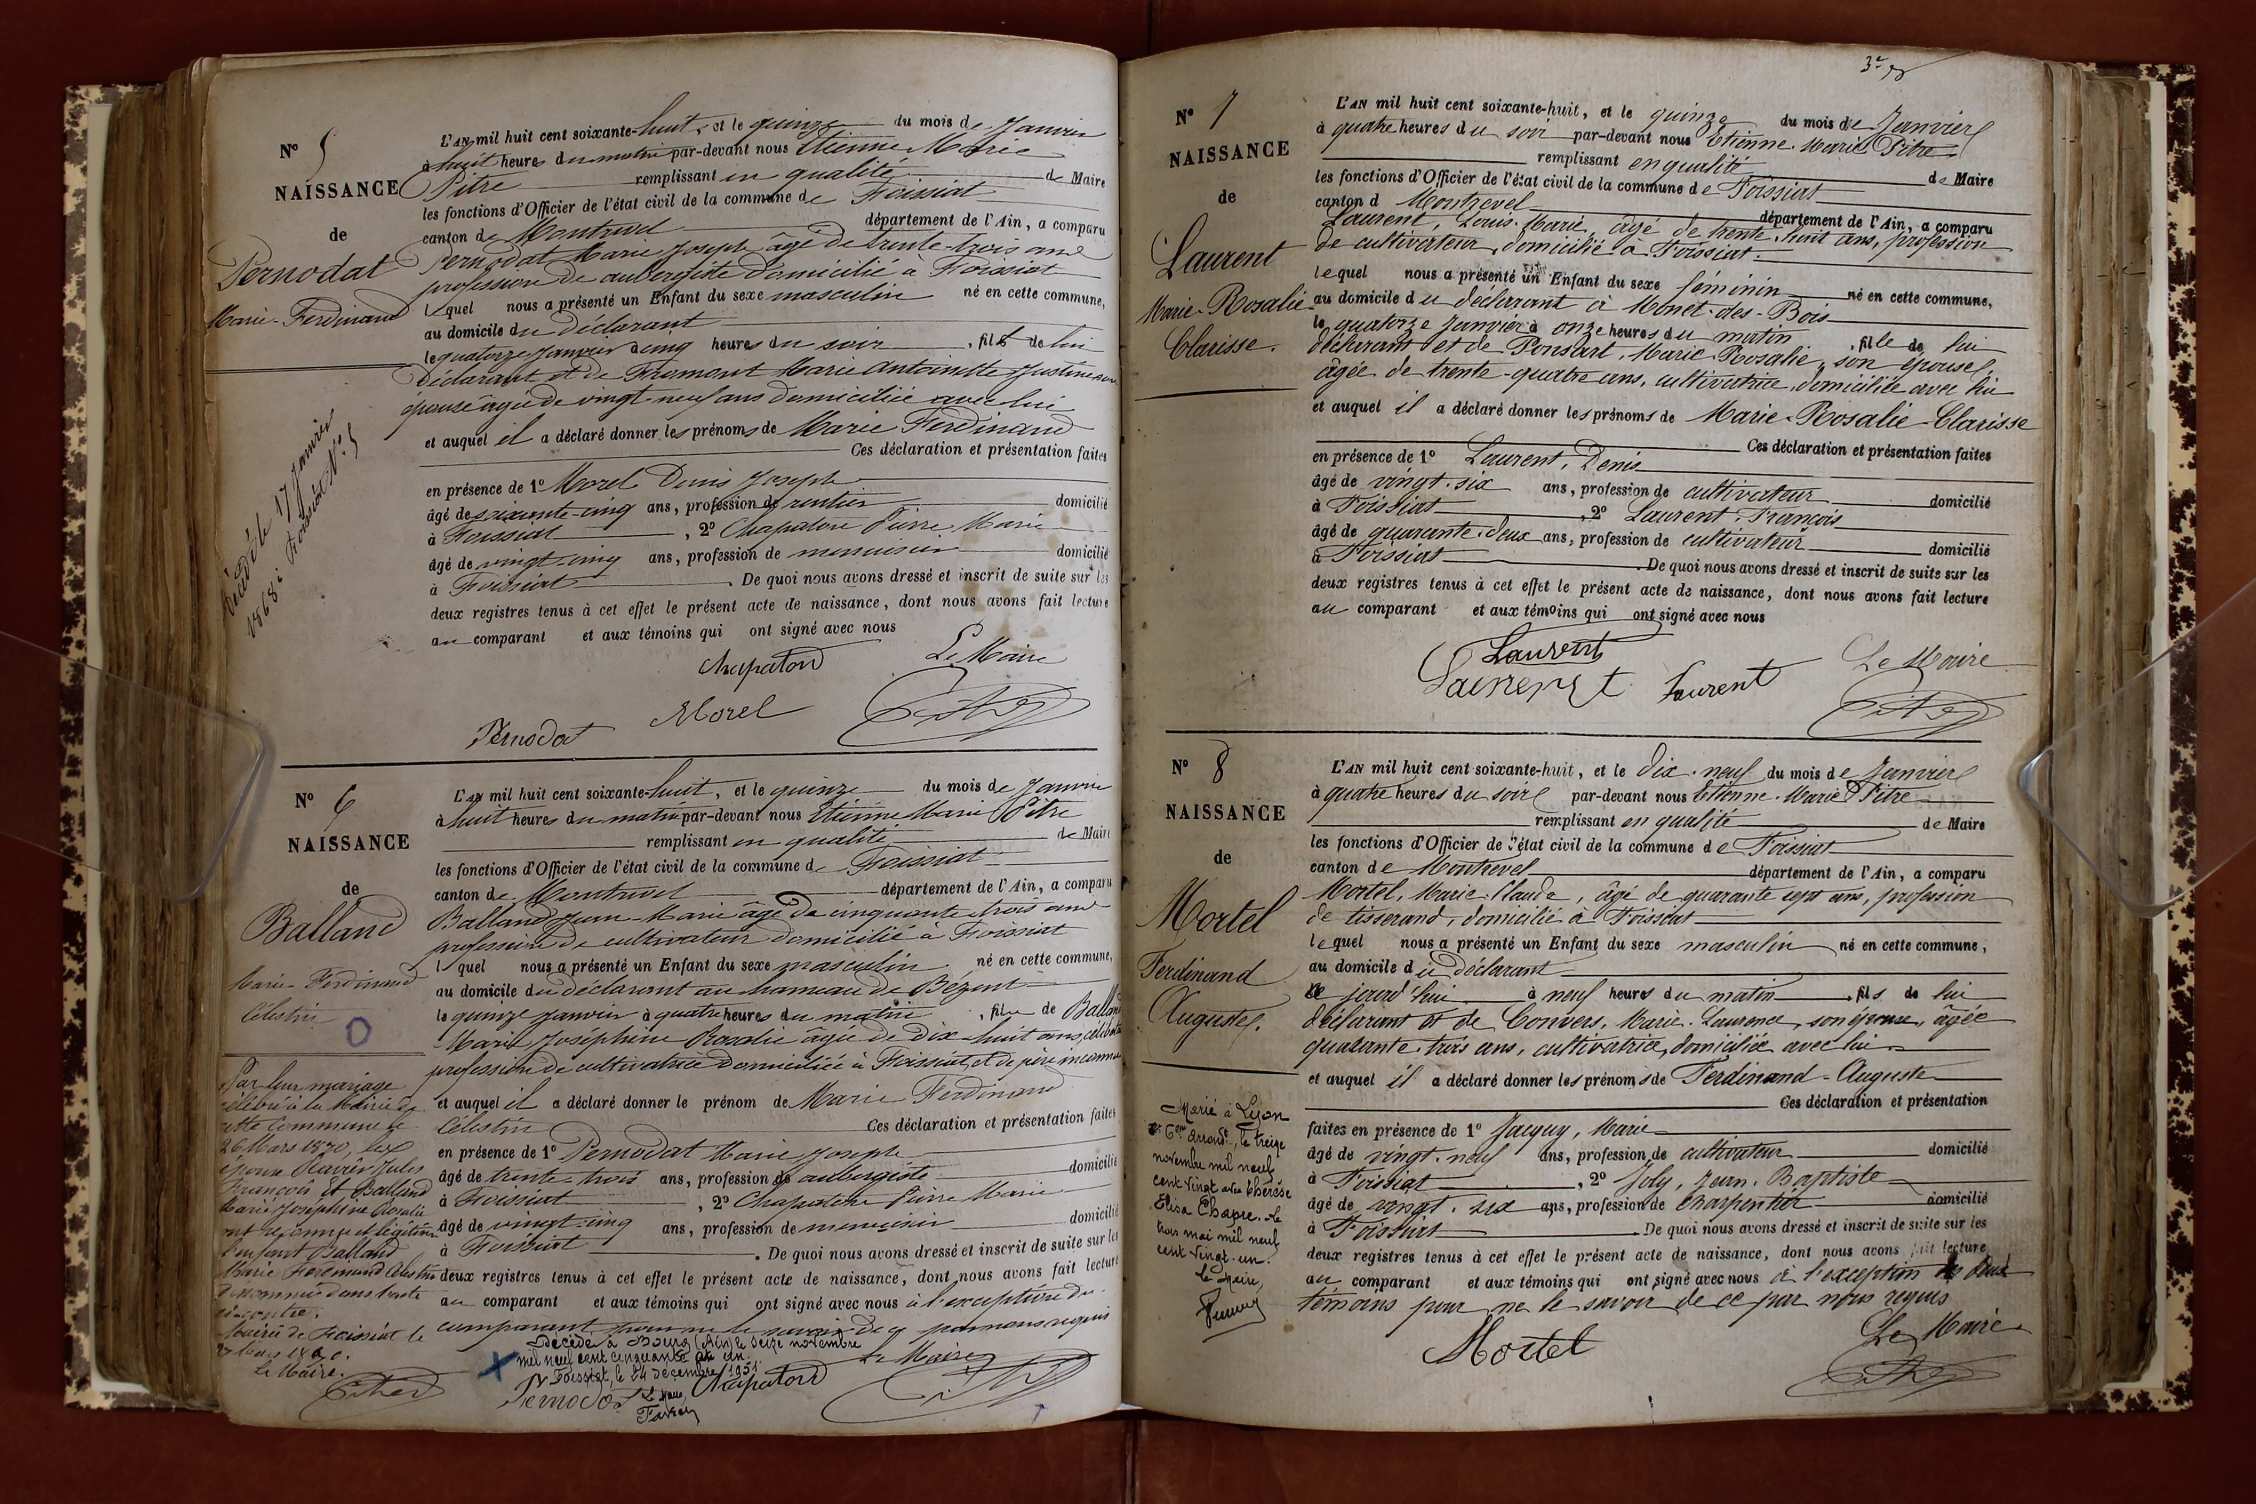 N° 5
NAISSANCE
de
Pernodat
Marie-Ferdinand
Décédé le 17 Janvier
1868. Foissiat N° 5
L'AN mil huit cent soixante-huit, et le quinze du mois de Janvier
à huit heures du matin par-devant nous Etienne Marie
Pitre remplissant en qualité de Maire
les fonctions d'Officier de l'état civil de la commune de Foissiat
canton de Montrevel département de l'Ain, a comparu
Pernodat Marie Joseph âgé de trente-trois ans
profession de aubergiste domicilié à Foissiat
lequel nous a présenté un Enfant du sexe masculin né en cette commune,
au domicile du déclarant
le quatorze Janvier à cinq heures du soir, fils de lui
déclarant et de Fromont Marie Antoinette Justine son
épouse âgée de vingt-neuf ans domiciliée avec lui
et auquel il a déclaré donner les prénoms de Marie Ferdinand
Ces déclaration et présentation faites
en présence de 1° Morel Denis Joseph
âgé de soixante-cinq ans, profession de rentier domicilié
à Foissiat, 2° Chapaton Pierre Marie
âgé de vingt-cinq ans, profession de menuisier domicilié
à Foissiat. De quoi nous avons dressé et inscrit de suite sur les
deux registres tenus à cet effet le présent acte de naissance, dont nous avons fait lecture
au comparant et aux témoins qui ont signé avec nous
Chapaton Le Maire
Pernodat Morel Pitre
N° 6
NAISSANCE
de
Balland
Marie-Ferdinand
Célestin
Par leur mariage
célébré à la Mairie de
cette Commune le
26 Mars 1870, les
époux Olivier Jules
François et Balland
Marie Joséphine Rosalie
ont reconnu et légitimé
l'enfant Balland
Marie Ferdinand Célestin
dénommé dans l'acte
ci-contre.
Mairie de Foissiat le
Mars 1870.
Le Maire.
Pitre
L'AN mil huit cent soixante-huit, et le quinze du mois de Janvier
à huit heures du matin par-devant nous Etienne Marie Pitre
remplissant en qualité de Maire
les fonctions d'Officier de l'état civil de la commune de Foissiat
canton de Montrevel département de l'Ain, a comparu
Balland Jean-Marie âgé de cinquante-trois ans
profession de cultivateur domicilié à Foissiat
lquel nous a présenté un Enfant du sexe masculin né en cette commune,
au domicile du déclarant au hameau de Bézent
le quinze Janvier à quatre heures du matin, fils de Balland
Marie Joséphine Rosalie âgée de dix-huit ans, célibataire
profession de cultivatrice domiciliée à Foissiat, et de père inconnu
et auquel il a déclaré donner le prénom de Marie Ferdinand
Célestin Ces déclaration et présentation faites
en présence de 1° Pernodat Marie Joseph
âgé de trente-trois ans, profession de aubergiste domicilié
à Foissiat, 2° Chapaton Pierre Marie
âgé de vingt-cinq ans, profession de menuisier domicilié
à Foissiat. De quoi nous avons dressé et inscrit de suite sur les
deux registres tenus à cet effet le présent acte de naissance, dont nous avons fait lecture
au comparant et aux témoins qui ont signé avec nous à l'exception du
comparant pour ne le savoir de ce par nous requis
Décédé à Bourg (Ain) le seize novembre
mil neuf cent cinquante et un.
Foissiat, le 24 décembre 1951.
Le Maire
Pernodat Chapaton Le Maire
Pitre
3e
N° 7
NAISSANCE
de
Laurent
Marie-Rosalie-
Clarisse.
L'AN mil huit cent soixante-huit, et le quinze du mois de Janvier
à quatre heures du soir par-devant nous Etienne-Marie Pitre
remplissant en qualité de Maire
les fonctions d'Officier de l'état civil de la commune de Foissiat
canton d Montrevel département de l'Ain, a comparu
Laurent, Louis-Marie, âgé de trente-huit ans, profession
de cultivateur, domicilié à Foissiat.
lequel nous a présenté un Enfant du sexe féminin né en cette commune,
au domicile du déclarant à Monet-des-Bois
le quatorze Janvier à onze heures du matin, fille de lui
déclarant et de Ponsart, Marie-Rosalie, son épouse,
âgée de trente-quatre ans, cultivatrice, domiciliée avec lui
et auquel il a déclaré donner les prénoms de Marie-Rosalie-Clarisse
Ces déclaration et présentation faites
en présence de 1° Laurent, Denis
âgé de vingt-six ans, profession de cultivateur domicilié
à Foissiat, 2° Laurent, François
âgé de quarante-deux ans, profession de cultivateur domicilié
à Foissiat. De quoi nous avons dressé et inscrit de suite sur les
deux registres tenus à cet effet le présent acte de naissance, dont nous avons fait lecture
au comparant et aux témoins qui ont signé avec nous
Laurent
Laurent Laurent Le Maire
Pitre
N° 8
NAISSANCE
de
Mortel
Ferdinand
Auguste.
Marié à Lyon
6em arrondt, le treize
novembre mil neuf
cent vingt avec Thérèse
Elisa Chapre. Le
trois mai mil neuf
cent vingt-un.
Le Maire,
L'AN mil huit cent soixante-huit, et le dix-neuf du mois de Janvier
à quatre heures du soir par-devant nous Etienne-Marie Pitre
remplissant en qualité de Maire
les fonctions d'Officier de l'état civil de la commune de Foissiat
canton de Montrevel département de l'Ain, a comparu
Mortel, Marie-Claude, âgé de quarante-sept ans, profession
de tisserand, domicilié à Foissiat
lequel nous a présenté un Enfant du sexe masculin né en cette commune,
au domicile du déclarant
jourd'hui à neuf heures du matin, fils de lui
déclarant et de Convers, Marie-Laurence, son épouse, âgée
quarante-trois ans, cultivatrice, domiciliée avec lui
et auquel il a déclaré donner les prénoms de Ferdinand-Auguste
Ces déclaration et présentation
faites en présence de 1° Jacquy, Marie
âgé de vingt-neuf ans, profession de cultivateur domicilié
à Foissiat, 2° Joly, Jean-Baptiste
âgé de vingt-six ans, profession de charpentier domicilié
à Foissiat. De quoi nous avons dressé et inscrit de suite sur les
deux registres tenus à cet effet le présent acte de naissance, dont nous avons fait lecture
au comparant et aux témoins qui ont signé avec nous à l'exception des deux
témoins pour ne le savoir de ce par nous requis
Mortel Le Maire
Pitre